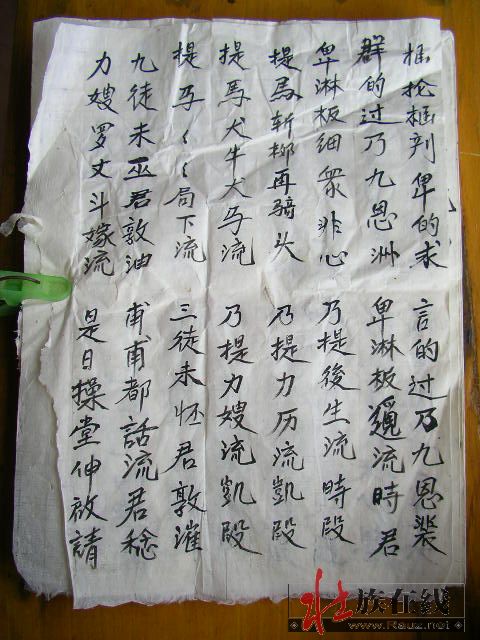 卑的求 言的过乃九恩裴
群的过乃九恩洲 卑淋板流時君
卑淋板细衆非心 乃提後生流時段
提馬斩柳再骑头 乃提力历流凱段
提馬犬牛犬马流 乃提力嫂流凱段
提马〻〻局下流 三徒未怀君敦漼
九徒未巫君敦油 甫甫都話流君稔
力嫂罗丈斗嫁流 是日操堂伸啟請
壮族在线
www.Rauz.net